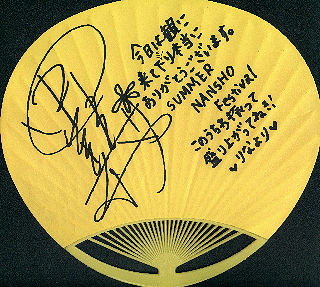 今日は観に
来て下り本当に
ありがとうございます。
SUMMER
NANSHO
Festival
このうちわ持って
盛り上がってね!!
♥りなより♥